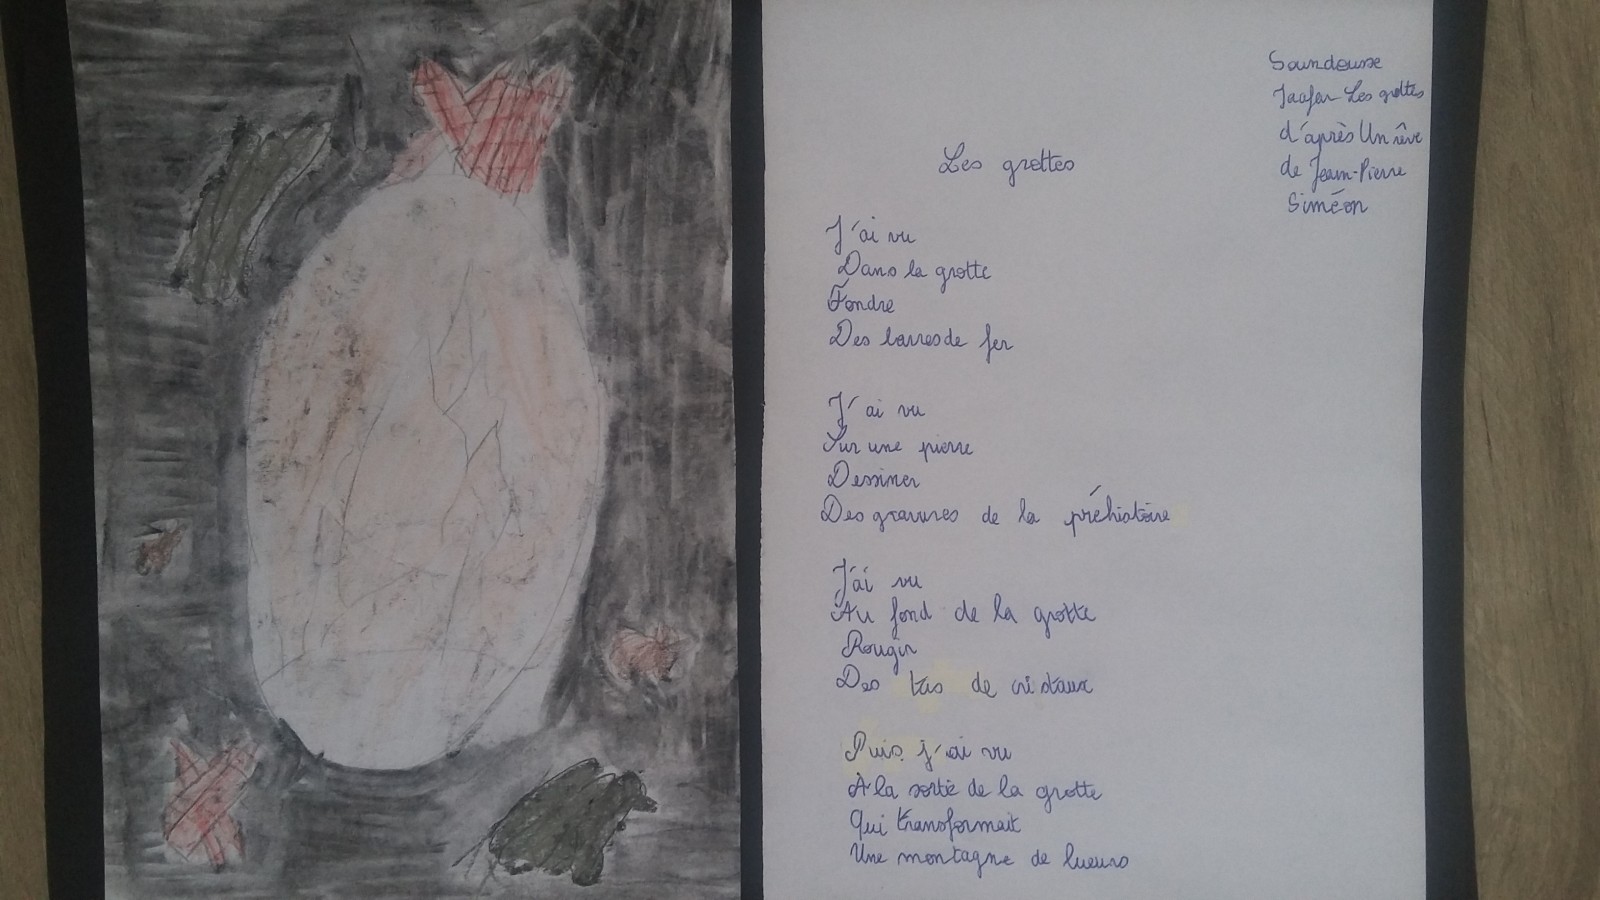 Soundousse
Jaafar Les grottes
d'après Un rêve
de Jean-Pierre
Siméon
Les grottes
J'ai vu
Dans la grotte
Fondre
Des barres de fer
J'ai vu
Sur une pierre
Dessiner
Des gravures de la préhistoire
J'ai vu
Au fond de la grotte
Rougir
Des tas de cristaux
Puis j'ai vu
À la sortie de la grotte
Qui transformait
Une montagne de lueurs